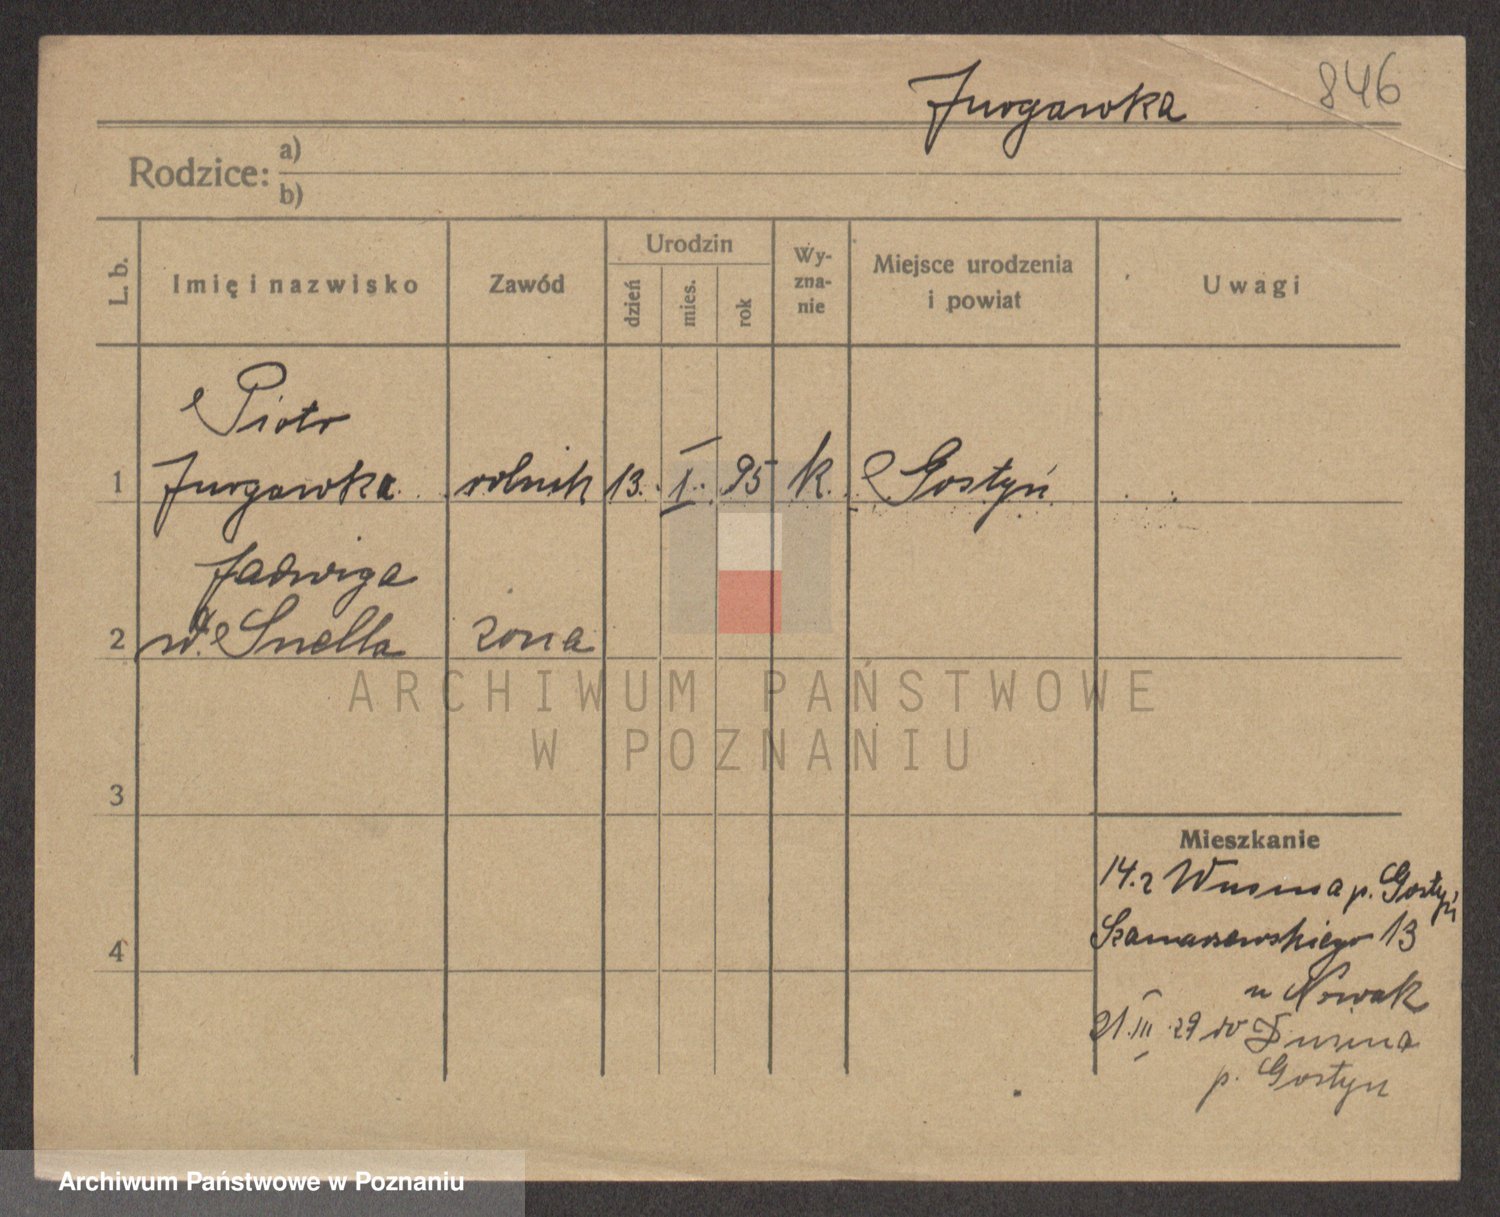 846
Jurgawka
Rodzice: a)
b)
L. b.
Imię i nazwisko
Zawód
Urodzin
dzień
mies.
rok
Wy-
zna-
nie
Miejsce urodzenia
i powiat
Uwagi
Piotr
1 Jurgawka rolnik 13. I. 95 k. Gostyń
Jadwiga
2 Snella żona
3
4
Mieszkanie
14. p. Gostyń
Szamarzewskiego 13
u Nowak
21. III 29 Dusina
p. Gostyn
ARCHIWUM PAŃSTWOWE
W POZNANIU
Archiwum Państwowe w Poznaniu